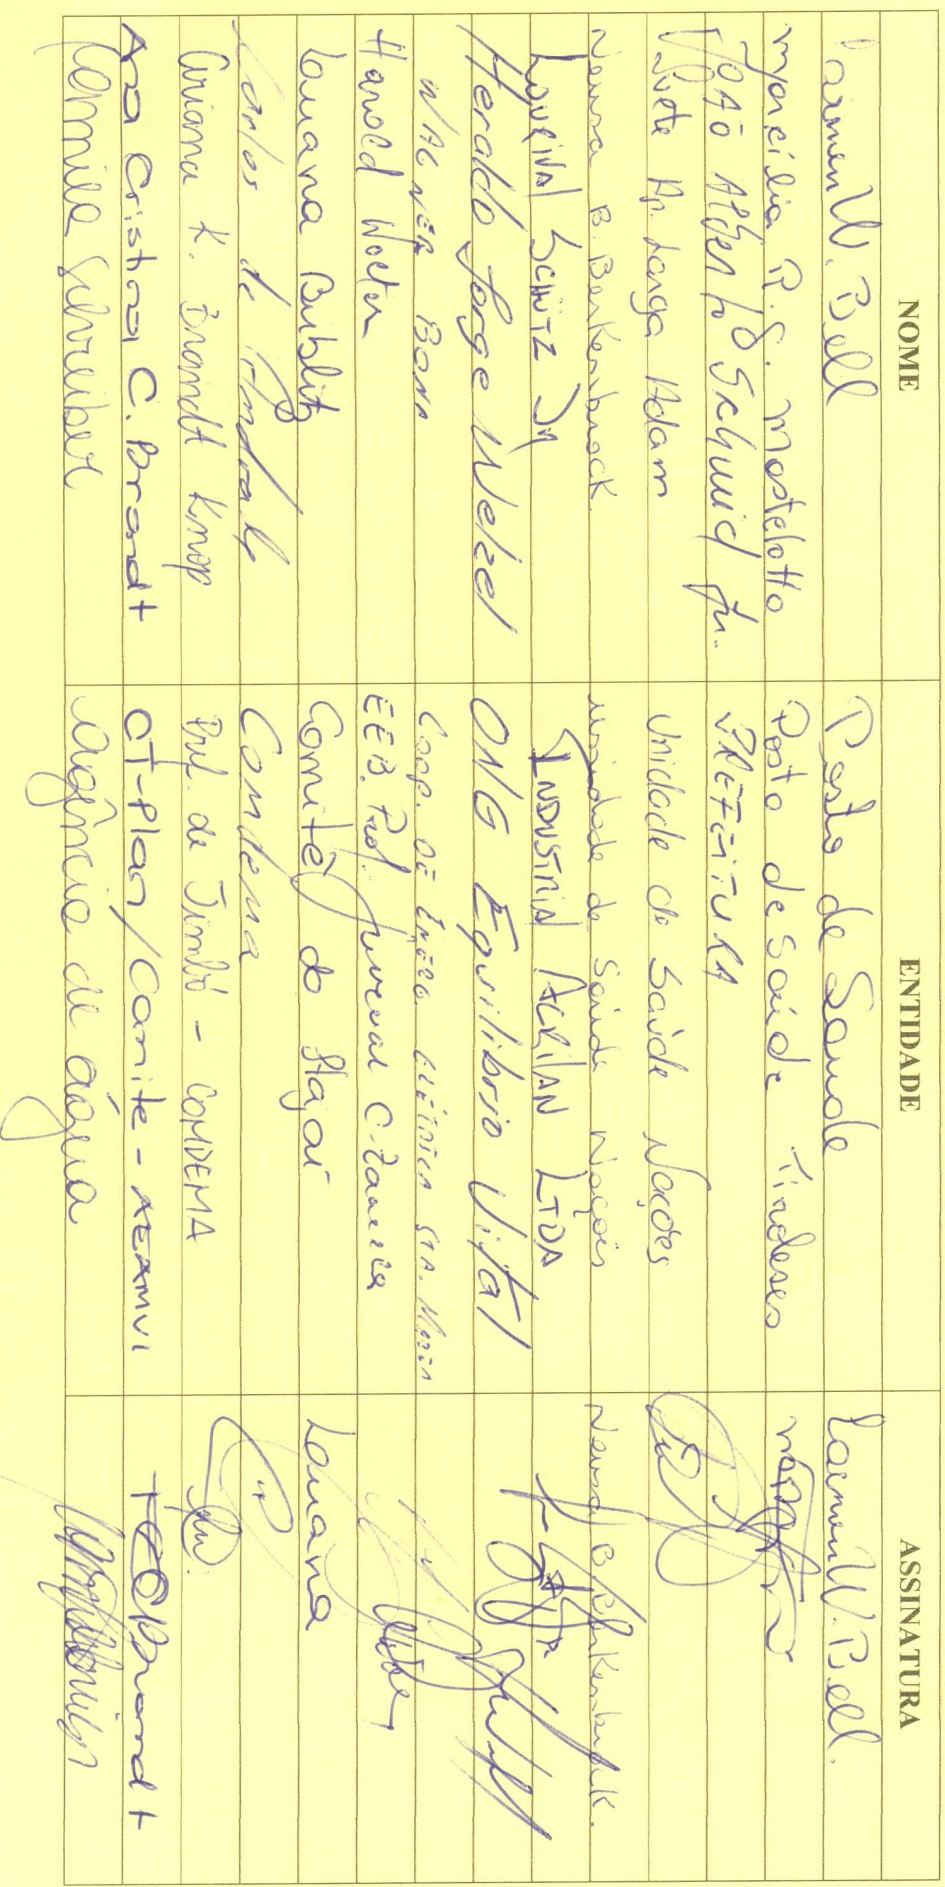 NOME ENTIDADE ASSINATURA
Carmen W. Bell Posto de Saude Carmen W. Bell.
Marcilia R. S. Mostelotto Posto de Saúde Tiroleses
João Alberto Schmid Jr. PREFEITURA
Ivete Ap. Longa Adam Unidade de Saúde Nações
Neusa B. Berkenbrock. Unidade de Saúde Nações Neusa B. Berkenbrock.
LOURIVAL SCHÜTZ JR INDUSTRIA ACRILAN LTDA
Heraldo Jorge Welzel ONG Equilibrio Vital
WAGNER BONA COOP. DE ELÉTRICA STA. MARIA
Harold Wolter EEB. Prof. Juvenal C.
Louana Bublitz Comitê do Itajaí Louana
Carlos de Andrade Condema
Ariana K. Brandt Knop Pref. de Timbó - CONDEMA
Ana Cristina C. Brandt CT-Plan/Comite - AEAMVI Brandt
Camila Schreiber Agência de água